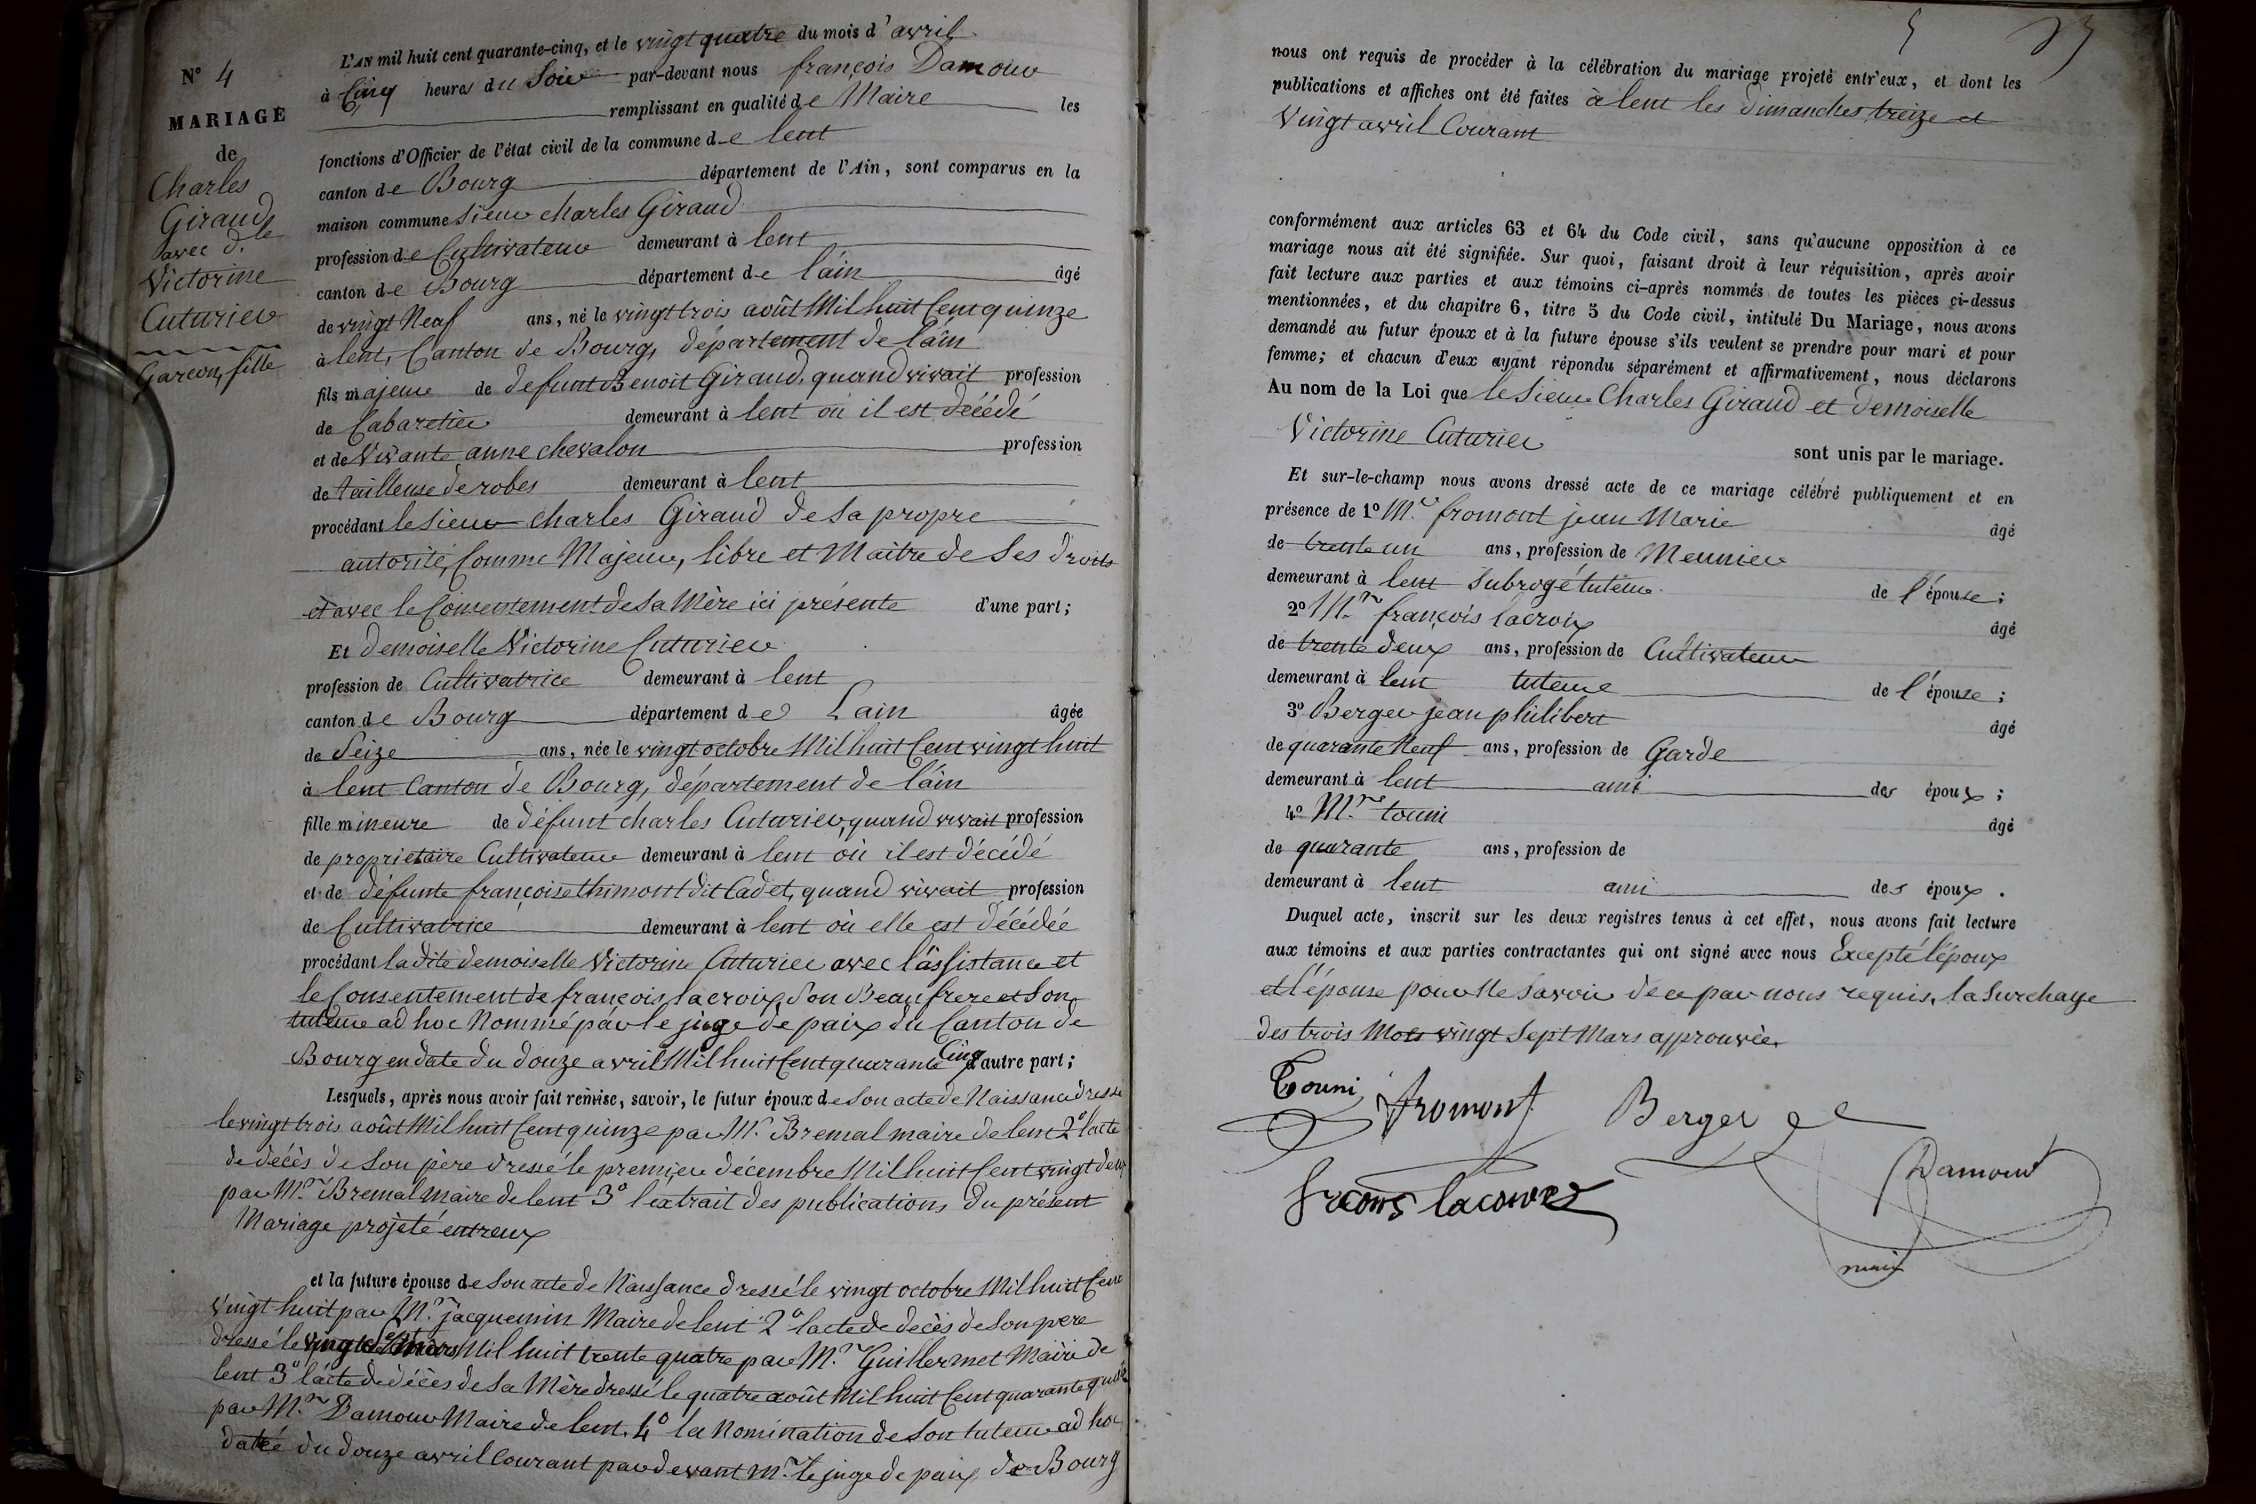 N° 4
MARIAGE
de
Charles
Giraud
avec d.lle
Victorine
Cuturier
Garçon, fille
L'AN mil huit cent quarante-cinq, et le vingt quatre du mois d'avril
à Cinq heures du Soir par-devant nous françois Damour
remplissant en qualité de Maire les
fonctions d'Officier de l'état civil de la commune de lent
canton de Bourg département de l'Ain, sont comparus en la
maison commune Sieur charles Giraud
profession de Cultivateur demeurant à lent
canton de Bourg département de l'ain âgé
de vingt Neuf ans, né le vingt trois août Mil huit Cent quinze
à lent, Canton de Bourg, département de l'ain
fils majeur de defunt Benoit Giraud, quand vivait profession
de Cabaretier demeurant à lent où il est décédé
et de Vivante anne chevalon profession
de tailleuse de robes demeurant à lent
procédant le Sieur charles Giraud de sa propre
autorité, Comme Majeur, libre et Maître de Ses droits
et avec le Consentement de Sa Mère ici présente d'une part;
Et demoiselle Victorine Cuturier
profession de Cultivatrice demeurant à lent
canton de Bourg département de Lain âgée
de Seize ans, née le vingt octobre Mil huit Cent vingt huit
à lent Canton de Bourg, département de l'ain
fille mineure de défunt charles Cuturier, quand vivait profession
de propriétaire Cultivateur demeurant à lent où il est décédé
et de défunte françoise thimont dit Cadet, quand vivait profession
de Cultivatrice demeurant à lent où elle est décédée
procédant ladite demoiselle Victorine Cuturier avec l'assistance et
le Consentement de françois lacroix Son Beau frere et Son
tuteur ad hoc Nommé par le juge de paix du Canton de
Bourg en date du douze avril Mil huit Cent quarante Cinq d'autre part;
Lesquels, après nous avoir fait remise, savoir, le futur époux de Son acte de Naissance dressé
le vingt trois août Mil huit Cent quinze par M.r Bremal maire de lent 2° l'acte
de décès de Son père dressé le premier décembre Mil huit Cent vingt deux
par M.r Bremal Maire de lent 3° l'extrait des publications du présent
Mariage projeté entreux
et la future épouse de Son acte de Naissance dressé le vingt octobre Mil huit Cent
vingt huit par M.r jacquemin Maire de lent 2° l'acte de décès de Son pere
dressé le vingt Sept Mars Mil huit trente quatre par M.r Guillermet Maire de
lent 3° l'acte de décès de Sa Mère dressé le quatre août Mil huit Cent quarante quatre
par M.r Damour Maire de lent, 4° la Nomination de Son tuteur ad hoc
datée du douze avril Courant par devant M.r le juge de paix de Bourg
5
nous ont requis de procéder à la célébration du mariage projeté entr'eux, et dont les
publications et affiches ont été faites à lent les dimanches treize et
Vingt avril Courant
conformément aux articles 63 et 64 du Code civil, sans qu'aucune opposition à ce
mariage nous ait été signifiée. Sur quoi, faisant droit à leur réquisition, après avoir
fait lecture aux parties et aux témoins ci-après nommés de toutes les pièces ci-dessus
mentionnées, et du chapitre 6, titre 5 du Code civil, intitulé Du Mariage, nous avons
demandé au futur époux et à la future épouse s'ils veulent se prendre pour mari et pour
femme; et chacun d'eux ayant répondu séparément et affirmativement, nous déclarons
Au nom de la Loi que le Sieur Charles Giraud et demoiselle
Victorine Cuturier
sont unis par le mariage.
Et sur-le-champ nous avons dressé acte de ce mariage célébré publiquement et en
présence de 1° M.r fromont jean Marie âgé
de trente un ans, profession de Meunier
demeurant à lent Subrogé tuteur de l'épouse;
2° M.r françois lacroix âgé
de trente deux ans, profession de Cultivateur
demeurant à lent tuteur de l'épouse;
3° Berger jean philibert âgé
de quarante Neuf ans, profession de Garde
demeurant à lent ami des époux;
4° M.r touni âgé
de quarante ans, profession de
demeurant à lent ami des époux.
Duquel acte, inscrit sur les deux registres tenus à cet effet, nous avons fait lecture
aux témoins et aux parties contractantes qui ont signé avec nous Excepté l'époux
et l'épouse pour Ne Savoir de ce par nous requis, la Surcharge
des trois Mots vingt Sept Mars approuvée.
Touni fromont Berger
Damour
francois lacroix
maire